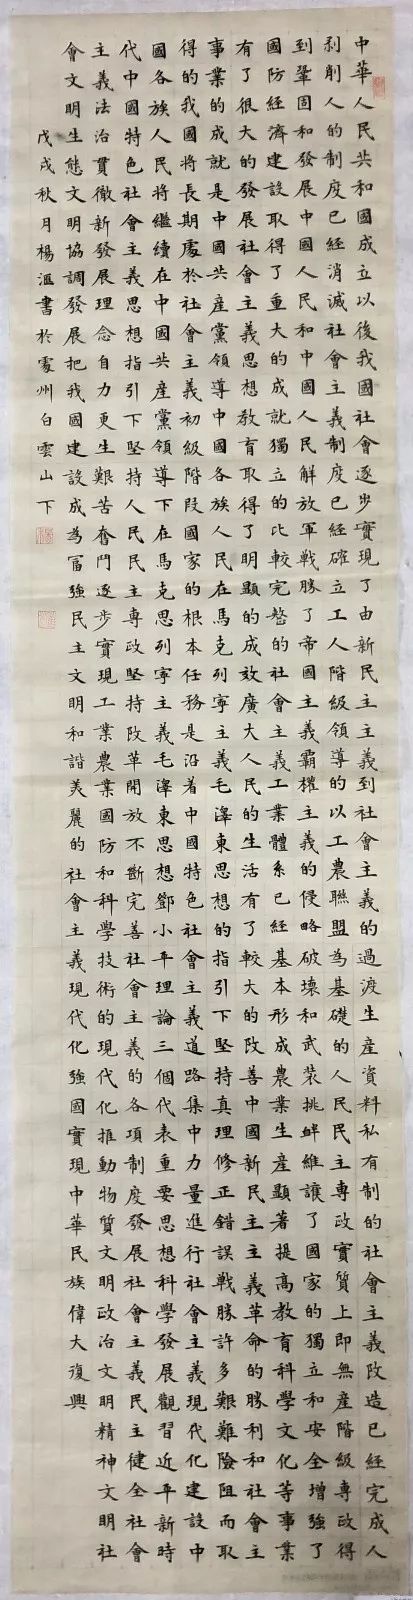 中華人民共和國成立以後我國社會逐步實現了由新民主主義到社會主義的過渡生産資料私有制的社會主義改造已經完成人
剥削人的制度已經消滅社會主義制度已經確立工人階級領導的以工農聯盟為基礎的人民民主專政實質上即無産階級專政得
到鞏固和發展中國人民和中國人民解放軍戰勝了帝國主義霸權主義的侵略破壞和武裝挑衅維護了國家的獨立和安全增強了
國防經濟建設取得了重大的成就獨立的比較完整的社會主義工業體系已經基本形成農業生産顯著提高教育科學文化等事業
有了很大的發展社會主義思想教育取得了明顯的成效廣大人民的生活有了較大的改善中國新民主主義革命的勝利和社會主
事業的成就是中國共産黨領導中國各族人民在馬克列寧主義毛澤東思想的指引下堅持真理修正錯誤戰勝許多艱難險阻而取
得的我國將長期處於社會主義初級階段國家的根本任務是沿着中國特色社會主義道路集中力量進行社會主義現代化建設中
國各族人民將繼續在中國共産黨領導下在馬克思列寧主義毛澤東思想鄧小平理論三個代表重要思想科學發展觀習近平新時
代中國特色社會主義思想指引下堅持人民民主專政堅持改革開放不斷完善社會主義的各項制度發展社會主義民主健全社會
主義法治貫徹新發展理念自力更生艱苦奮鬥逐步實現工業農業國防和科學技術的現代化推動物質文明政治文明精神文明社
會文明生態文明協調發展把我國建設成為富強民主文明和諧美麗的社會主義現代化強國實現中華民族偉大復興
戊戌秋月楊滙書於處州白雲山下